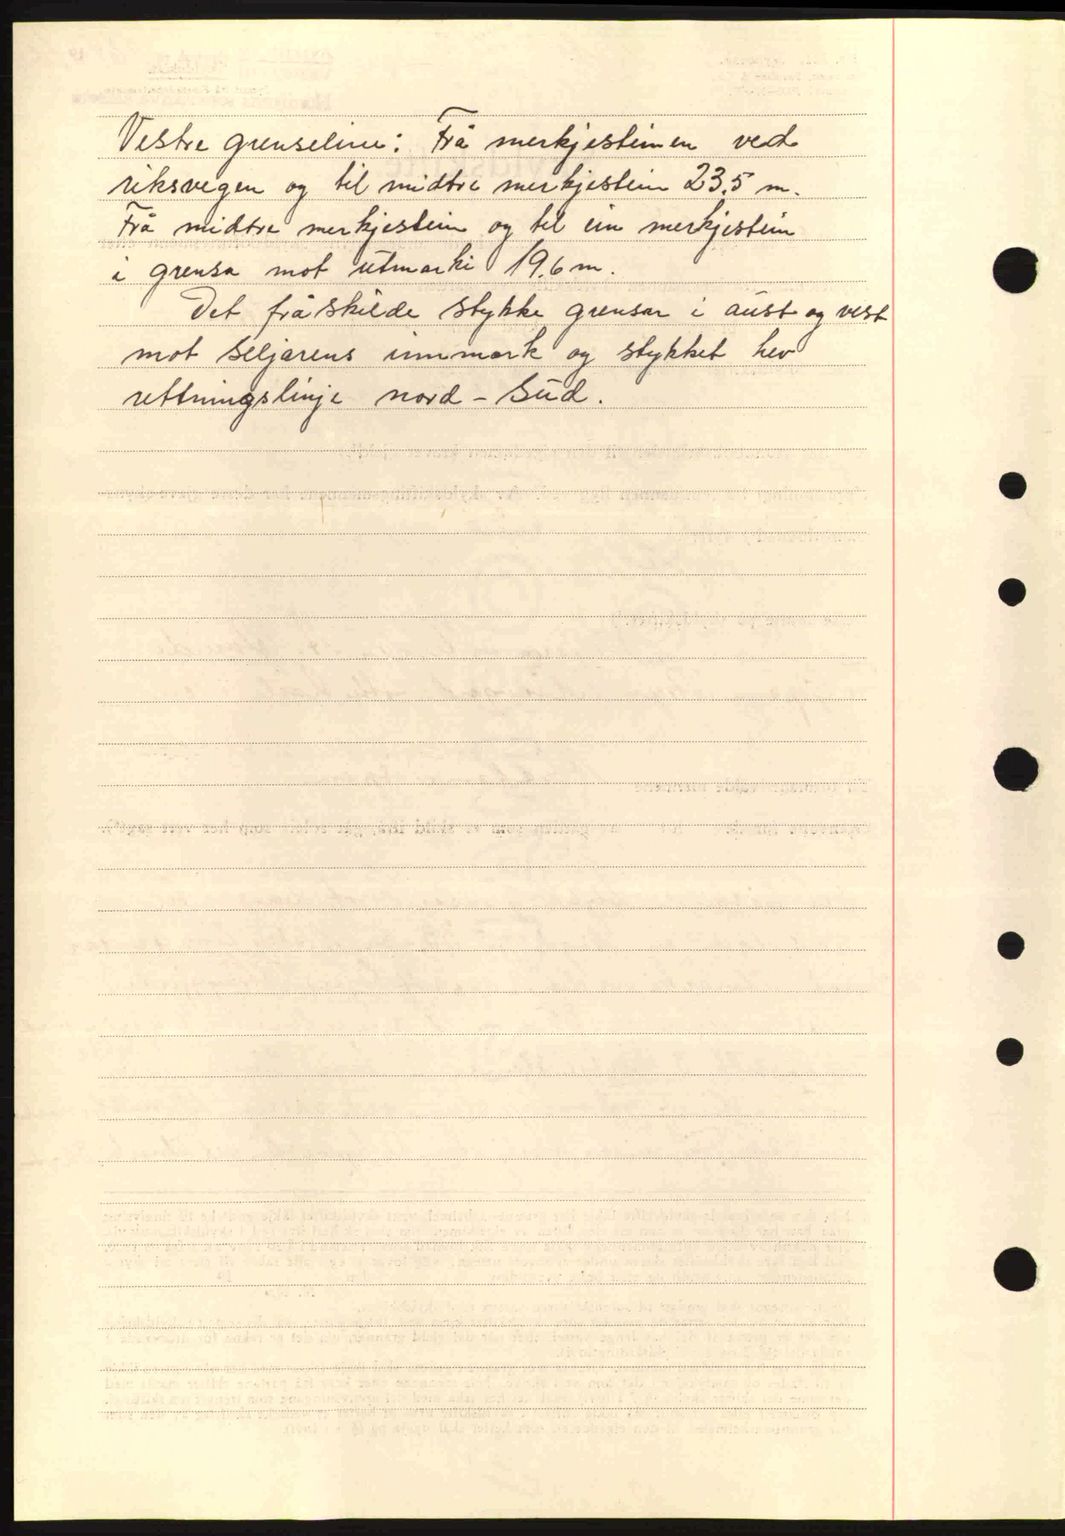 Vestre grenseline: Frå merkjesteinen ved
riksvegen og til midtre merkjestein 23.5 m.
Frå midtre merkjestein og til ein merkjestein
i grensa mot utmarki 19.6 m.
Det fråskilde stykke grensar i aust og vest
mot seljarens innmark og stykket hev
rettningslinje nord - Sud.